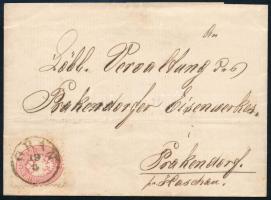 An
Löbl. Verwaltung des
Prakendorfer Eisenwerkes
i
Prakendorf.
pr Kaschau.
GRAN
19
5